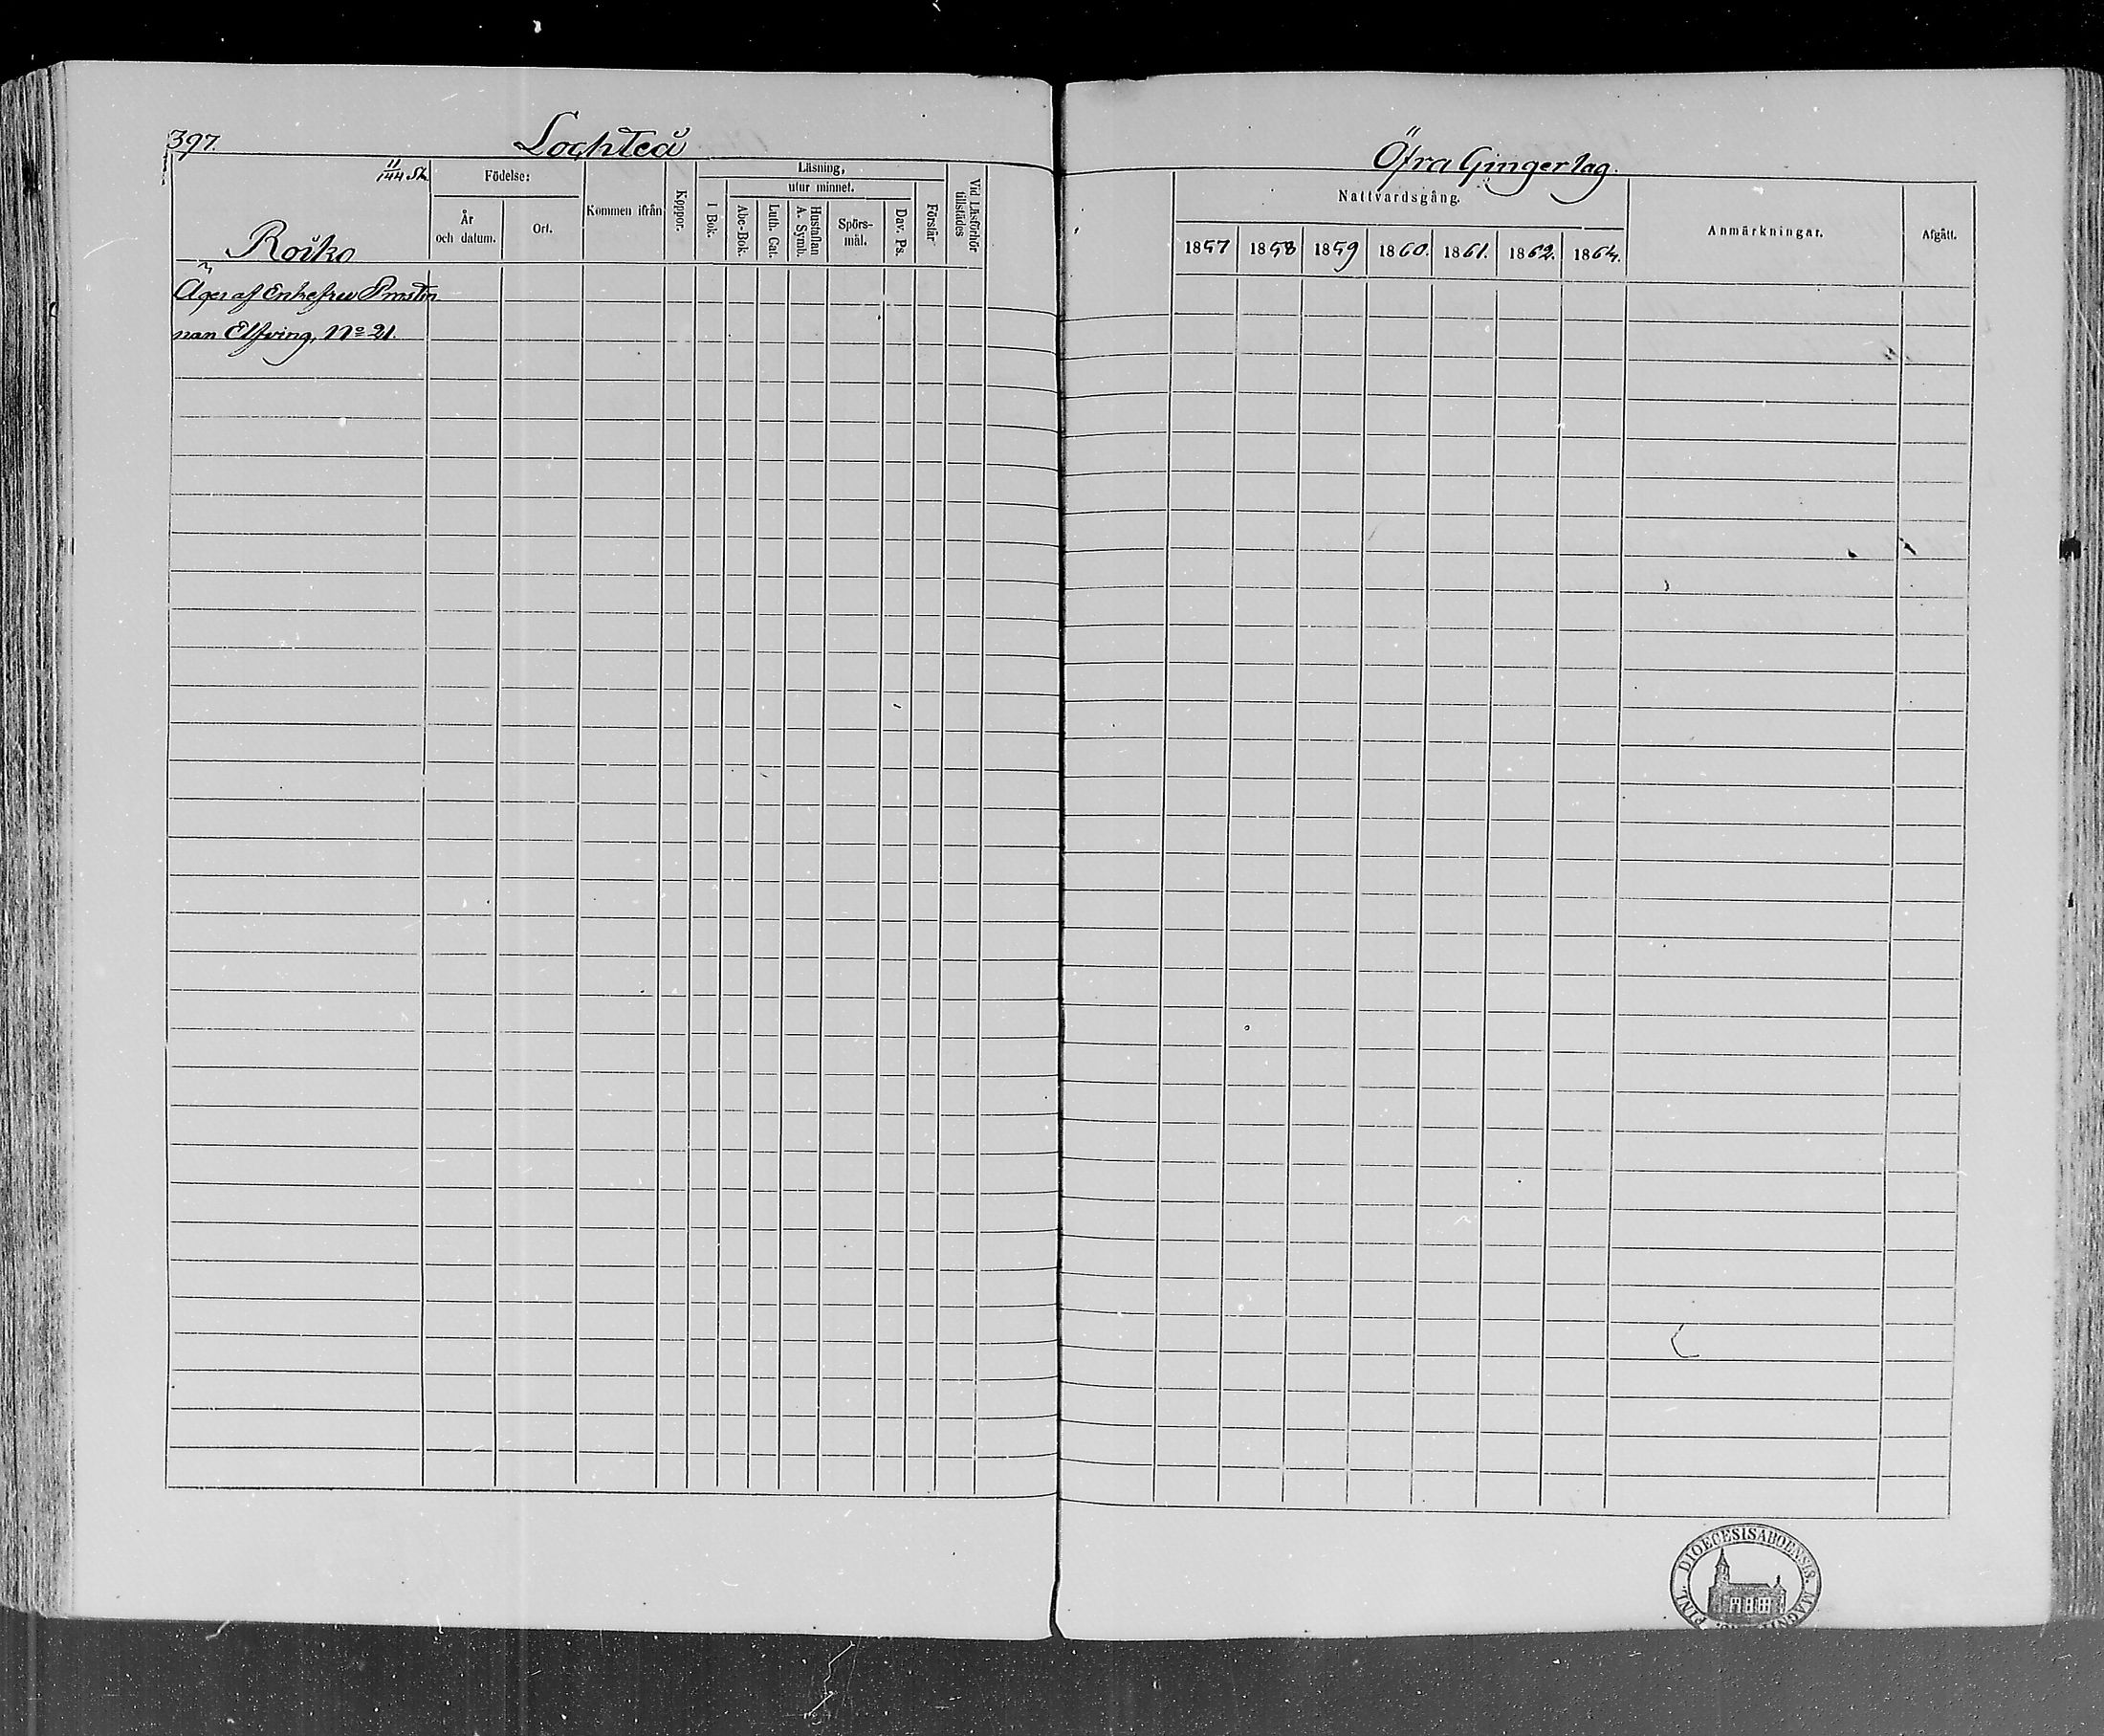 397.
Lochteå
11/144 St.
Roiko
Födelse:
År
och datum.
Ort.
Kommen ifrån
Koppor.
Läsning,
utur minnet.
I Bok.
Abc-Bok.
Luth. Cat.
Hustaflan
A. Symb.
Spörs-
mål.
Dav. Ps.
Förstår
Vid Läsförhör
tillstädes
Äges af Enkefru Prostin
nan Elfving, No 21.
Öfra Gingerlag.
Nattvardsgång.
1857 1858 1859 1860. 1861. 1862. 1864.
Anmärkningar.
Afgått.
DIOECESIS ABOENSIS. MAGNI